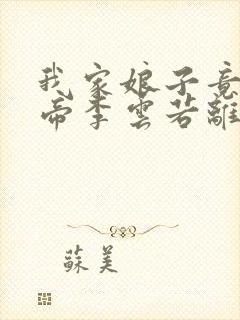 我家娘子竟
帝李雲若離
蘇美